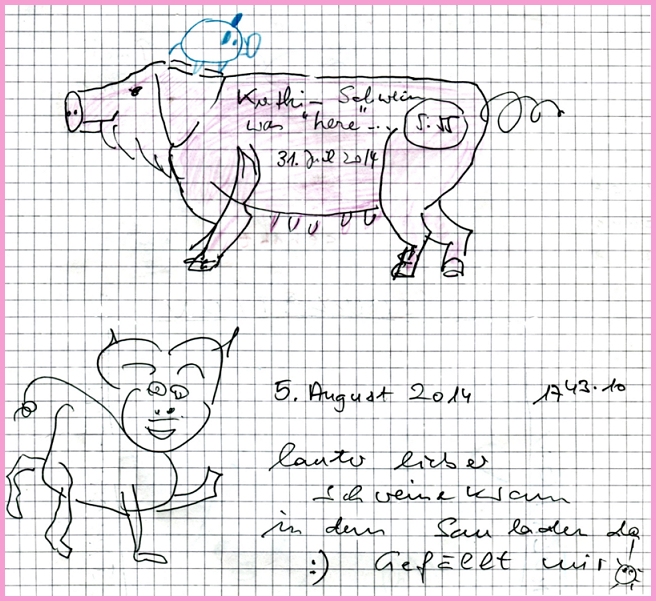 Kathi-Schwein
was "here"...
31. Juli 2014
5. August 2014
1743.10
lauter lieber
Schweinekram
in dem Sauladen da!
:) Gefällt mir